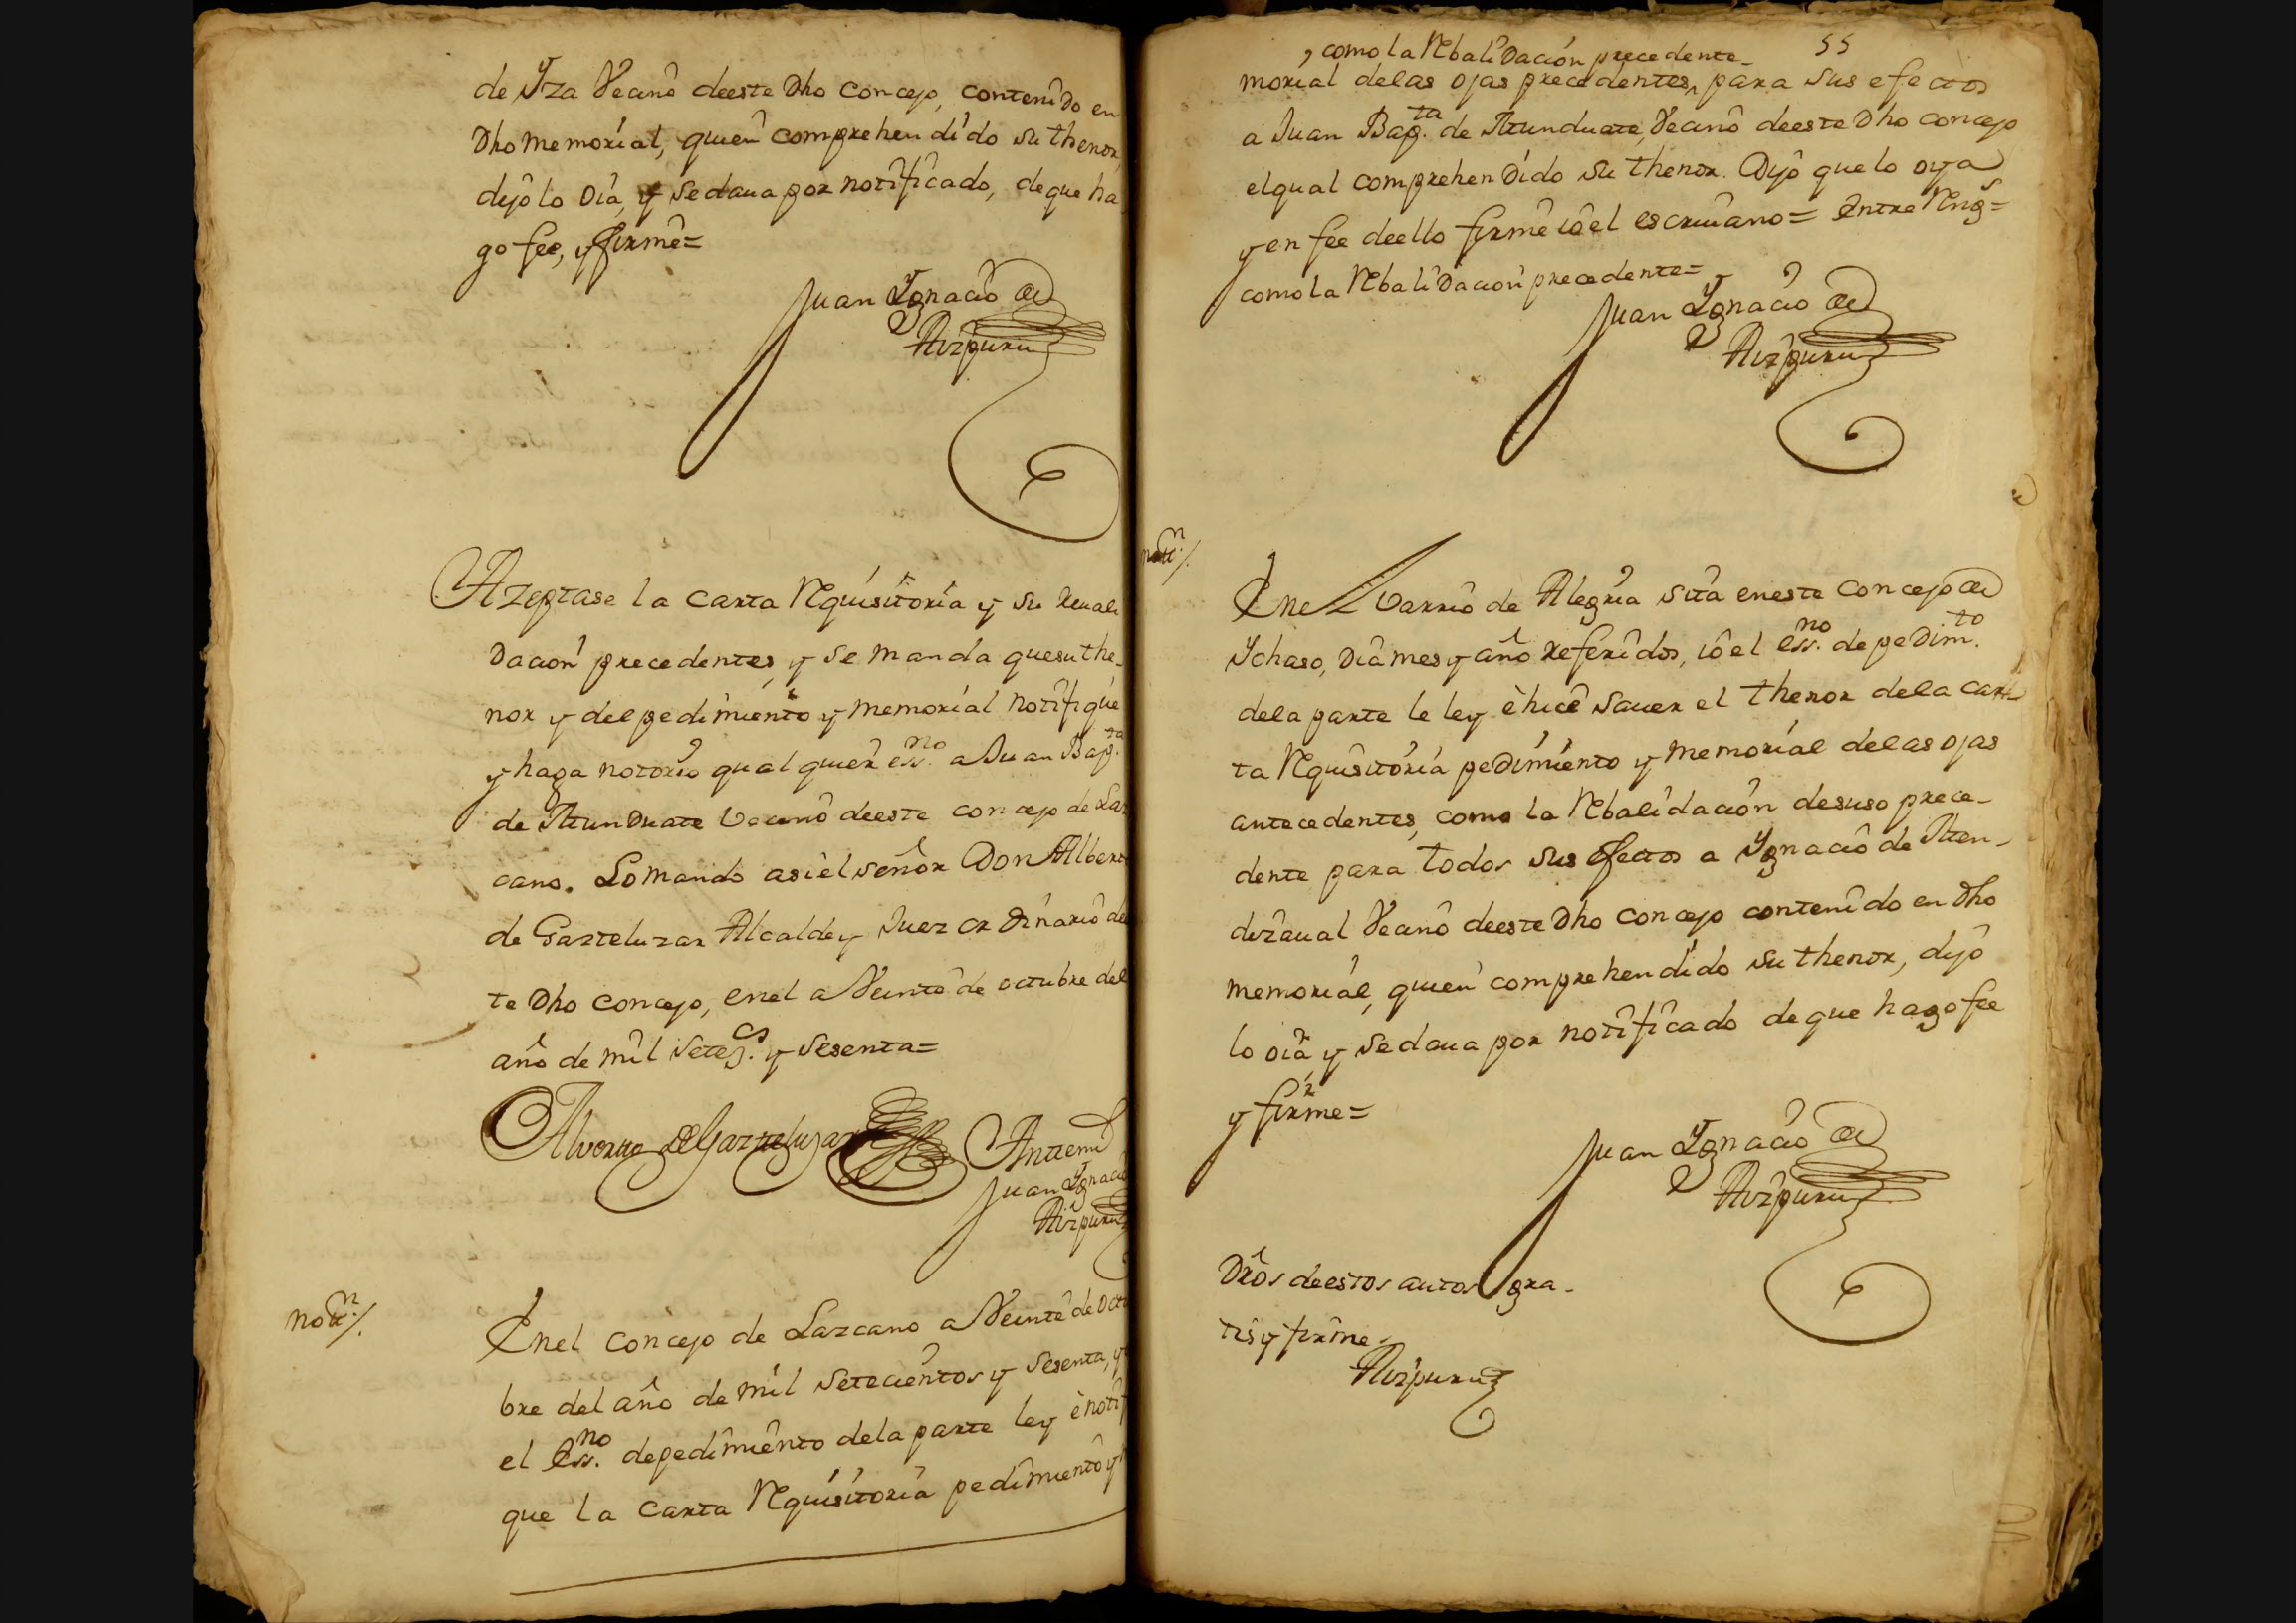 de Yza Vecino deeste Dho concejo, contenido en
Dho memorial, quien comprehendido su thenor
dijo lo oia, y sedaua por notificado, deque ha
go fee, y firme=
Juan Ygnacio de
Aizpuru
Azeptase la carta Requisitoria y su reuali
dacion precedentes, y se manda quesuthe-
nor y del pedimiento y memorial notifique
y haga notorio qualquier ess.no a Juan Bap.ta
de Atunduate Vecino deeste concejo de Laz
cano. Lo mando asi el señor Don Albert
de Gazteluzar Alcalde y Juez ordinario de
te Dho concejo, enel a Veinte de octubre del
año de mil Setez.os y Sesenta=
Alverto de Gazteluzar
Antemi
Juan Ygnacio
Aizpuru
notz.n/.
Enel concejo de Lazcano a Veinte de octu
bre del año de mil setecientos y sesenta, y
el Ess.no depedimiento dela parte ley è notif
que la carta Requisitoria pedimiento y
55
, como la Rebalidacion precedente-
morial delas ojas precedentes, para sus efectos
a Juan Bap.ta de Atunduate, Vecino deeste Dho concejo
elqual comprehendido su thenor. Dijo quelo oya
y en fee deello firme io el escriuano= Entre Reng.s=
como la Rebalidacion precedente=
Juan Ygnacio de
Aizpuru
notz.n/.
Enel Varrio de Alegria sita eneste concejo de
Ychaso, dia mes y año referidos, io el ess.no de pedim.to
dela parte le ley è hice sauer el thenor dela car-
ta Requisitoria pedimiento y memorial delas ojas
antecedentes, como la Rebalidacion desuso prece-
dente para todos sus efectos a Ygnacio de Aten-
dizaual Vecino deeste Dho concejo contenido en Dho
memorial, quien comprehendido su thenor, dijo
lo oia y sedaua por notificado deque hago fee
y firme=
Juan Ygnacio de
Aizpuru
Dros deestos autos gra-
tis y firme-
Aizpuru